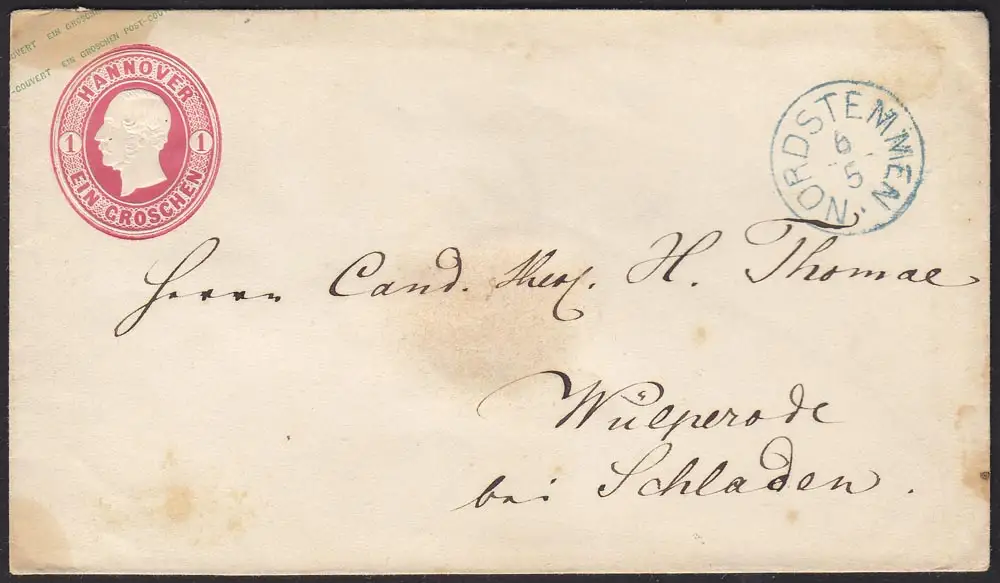 OUVERT EIN GROSCHEN POST-COUV
-COUVERT EIN GROSCHEN POST-COUVERT
HANNOVER
1 1
EIN GROSCHEN
NORDSTEMMEN.
6
5
Herrn Cand. theol. H. Thomae
Wülperode
bei Schladen.